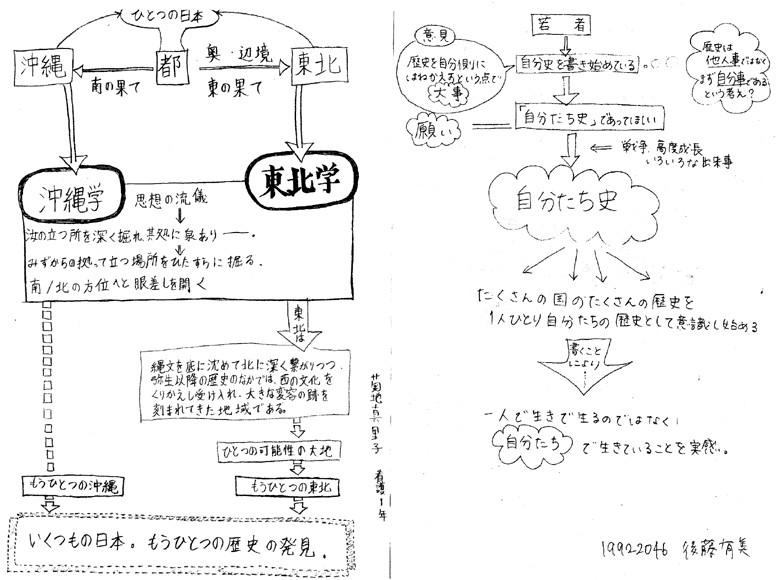 ひとつの日本
沖縄
都
奥・辺境
東北
南の果て
東の果て
沖縄学
東北学
思想の流儀
汝の立つ所を深く掘れ、其処に泉あり――。
みずからの拠って立つ場所をひたすらに掘る。
南/北の方位へと眼差しを開く
東北は
縄文を底に沈めて北に深く繋がりつつ、
弥生以降の歴史のなかでは、西の文化を
くりかえし受け入れ、大きな変容の跡を
刻まれてきた地域である。
ひとつの可能性の大地
もうひとつの沖縄
もうひとつの東北
いくつもの日本。もうひとつの歴史の発見.
菊地真里子 看護1年
若者
意見
歴史を自分側に
はねかえるという点で
大事
自分史を書き始めている。
歴史は
他人事ではなく
まず自分事である
という考え?
願い
「自分たち史」であってほしい
戦争、高度成長
いろいろな出来事
自分たち史
たくさんの国のたくさんの歴史を
1人ひとり自分たちの歴史として意識し始める
書くこと
により
一人で生きで生るのではなく
自分たち
で生きていることを実感。
19922046 後藤有美